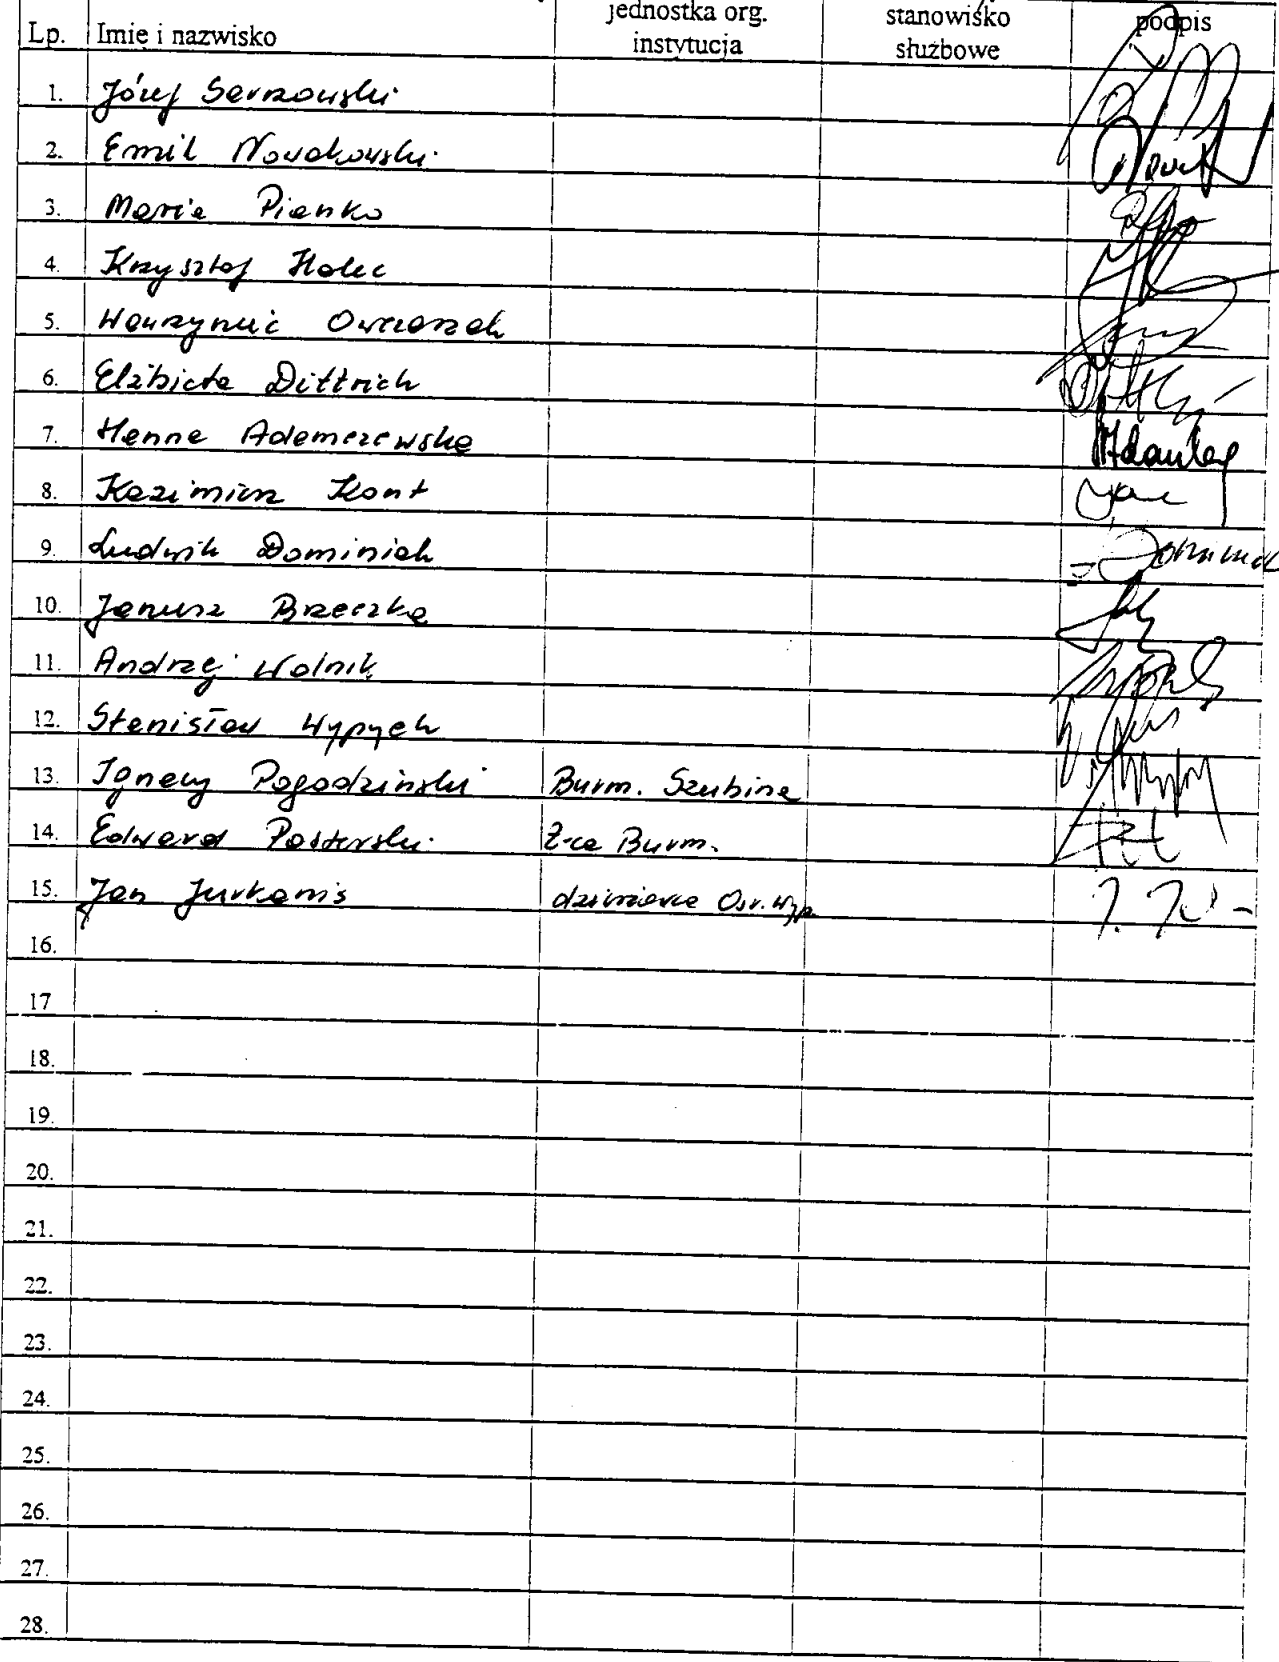 Lp. Imię i nazwisko jednostka org. instytucja stanowisko służbowe podpis
1. Józef Sarzowski
2. Emil Nowakowski
3. Maria Pieńko
4. Krzysztof Holec
5. Wawrzyniec Owczarzak
6. Elżbieta Dittrich
7. Hanna Adamczewska
8. Kazimierz Kont
9. Ludwik Dominiak
10. Janusz Brzeczka
11. Andrzej Wolnik
12. Stanisław Wypych
13. Ignacy Pogodziński Burm. Szubina
14. Edward Pasterski Z-ca Burm.
15. Jan Jurkanis
16.
17
18.
19.
20.
21.
22.
23.
24.
25.
26.
27.
28.